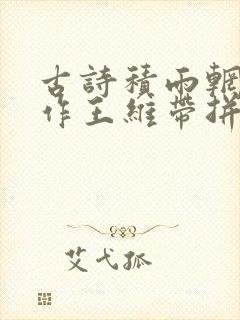 古詩積雨輞
作王維帶拼
艾弋孤